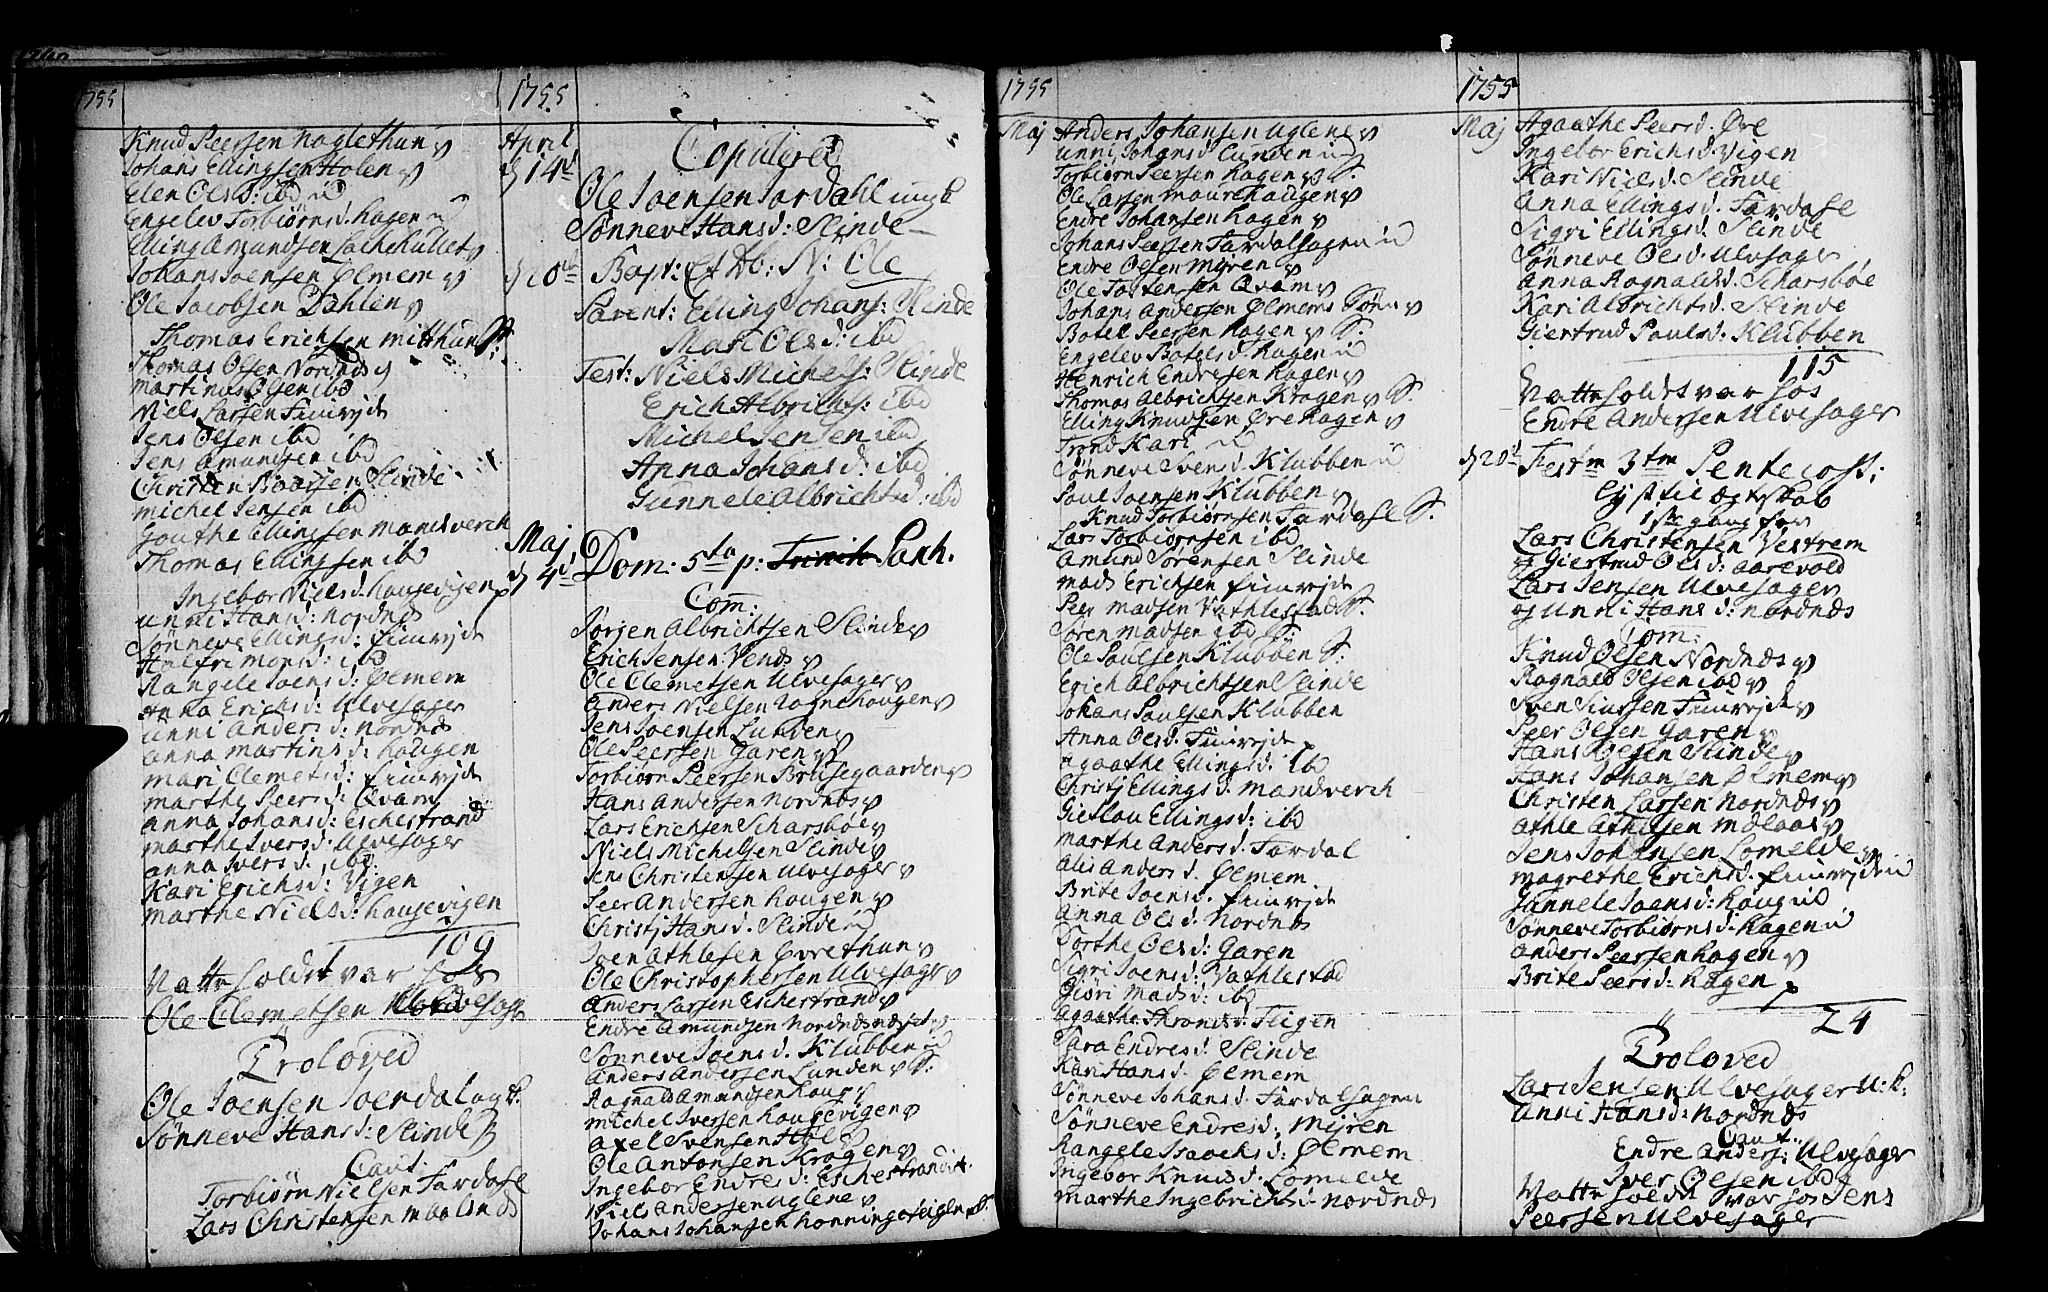 1755
Knud Peersen Naglethun
Johans Ellingsen Holen
Elen Olsd: ibd
Engelev Torbiørnsd: Hagen
Elling Amundsen
Johans Joensen Ølmem
Ole Jacobsen Dahlen
Thomas Erichsen Mitthun
Thomas Olsen Nordnds
Martinus Olsen ibd
Niels Larsen Fimrejte
Jens Olsen ibd
Jens Amundsen ibd
Christen Slinde
Michel Jensen ibd
Gouthe Ellingsen Mandverch
Thomas Ellingsen ibd
Ingebor Nielsd: Haugevigen
Unni Hansd: Nordnds
Sønneve Ellingsd: Fimrejte
Halfri Monsd: ibd
Rangele Joensd: Ølmem
Anna Erichsd: Ulvesager
Unni Andersd: Nordnds
Anna Martinsd: Haugen
Mari Clemetsd: Fimrejte
Marthe Peersd: Qvam
Anna Johansd: Eschestrand
Marthe Iversd: Ulvesager
Anna Iversd: ibd:
Kari Erichsd: Vigen
Marthe Nielsd: Haugevigen
109
Natte holdt var hos
Ole Clemetsen Ulvesager
Troloved
Ole Joensen
Sønneve Hansd: Slinde
Caut:
Torbiørn Nielsen Fardale
Lars Christensen
1755
April
d 14d
Copulered
Ole Joensen Jordahl ungk
Sønneve Hansd: Slinde
d 20d
Bapt: Et Db: N: Ole
Parent: Elling Johans: Slinde
Mari Olsd: ibd
Test: Niels Michels: Slinde
Erich Albrichts: ibd
Michel Jensen ibd
Anna Johansd: ibd
Gunnele Albrichtsd: ibd
Maj
d 4d
Dom. 5ta p: Trinit Pasch.
Com:
Jørgen Albrichtsen Slinde
Erich Jensen Vends
Ole Clemetsen Ulvesager
Anders Nielsen Vognehougen
Jens Joensen Lunden
Ole Peersen Garen
Torbiørn Peersen Brusegaarden
Hans Andersen Nordnds
Lars Erichsen Scharsbøe
Niels Michelsen Slinde
Jens Christensen Ulvesager
Peer Andersen Hougen
Christj Hansd: Slinde
Joen Athlesen Øvrethun
Ole Christophersen Ulvesager
Anders Larsen Eschestrand
Endre Amundsen
Sønneve Joensd. Klubben
Anders Andersen Lunden S:
Ragnald Amundsen
Michel Iversen Haugevigen
Axel Svensen
Ole Antonsen Kragen
Ingebor Endresd: Eschestrand
Niels Andersen Uglene
Johans Johansen S.
1755
Maj
Anders Johansen Uglene
Unni Johansd Lunden
Torbiørn Peersen Hagen S.
Ole Larsen Maurehaugen
Endre Johansen Hagen
Johans Peersen Fardalsagen
Endre Olsen Myren
Ole Tostensen Qvam
Johans Andersen Ølmems Sønn
Botel Peersen Hagen S.
Engelev Botelsd: Hagen
Henrich Endresen Hagen
Thomas Albrichtsen Kragen S.
Elling Knudsen Ørehagen
Trond Kari
Sønneve Svensd. Klubben
Poul Joensen Klubben
Knud Torbiørnsen Fardale S.
Lars Torbiørnsen ibd
Amund Sørensen Slinde
Mads Erichsen Fimrejte
Peer Madsen Vathlestad S.
Søren Madsen ibd S:
Ole Poulsen Klubben S:
Erich Albrichtsen Slinde
Johans Poulsen Klubben
Anna Olsd. Fimrejte
Agaathe Ellingsd: ibd
Christj Ellingsd: Mandverch
Gietlou Ellingsd: ibd
Marthe Andersd: Fardal
Alis Andersd. Ølmem
Brite Joensd. Fimrejte
Anna Olsd. Nordnds
Dorthe Olsd: Garen
Sigri Joensd: Vathlestad
Giøri Madsd: ibd
Agaathe Thronds d. Fligen
Sara Endresd. Slinde
Kari Hansd: Ølmem
Sønneve Johansd. Fardalsagen
Sønneve Endresd. Myren
Rangele Isaachsd: Ølmem
Ingebor Knudsd: Lomelde
Marthe Ingebrichtsd: Nordnds
1755
Maj
Agaathe Peersd. Øre
Ingebor Erichsd. Vigen
Kari Nielsd. Slinde
Anna Ellingsd. Fardale
Sigri Ellingsd. Slinde
Sønneve Olsd. Ulvesager
Anna Ragnaldsd. Scharsbøe
Kari Albrichtsd. Slinde
Giertrud Paulsd: Klubben
115
Natte holdt var hos
Endre Andersen Ulvesager
d 20d
Festm 3tm Pentecost:
Lyst til Ægteskab
1ste gang for
Lars Christensen Vestrem
og Giertrud Olsd: Aarevold
Lars Jensen Ulvesager
og Unni Hansd: Nordnds
Com:
Knud Olsen Nordnds
Ragnald Olsen ibd
Sven Siursen Fimrejte
Peer Olsen Garen
Hans Olsen Slinde
Hans Johansen Ølmem
Christen Larsen Nordnds
Athle Athlesen
Jens Johansen Lomelde
Magrethe Erichsd. Fimrejte
Jannele Joensd: Houg
Sønneve Torbiørnsd: Hagen
Anders Peersen Hagen
Brite Peersd: Hagen
24
Troloved
Lars Jensen Ulvesager U:k:
Unni Hansd: Nordnds
Caut:
Endre Anders: Ulvesager
Iver Olsen ibd
Natte holdt var hos Jens
Peersen Ulvesager